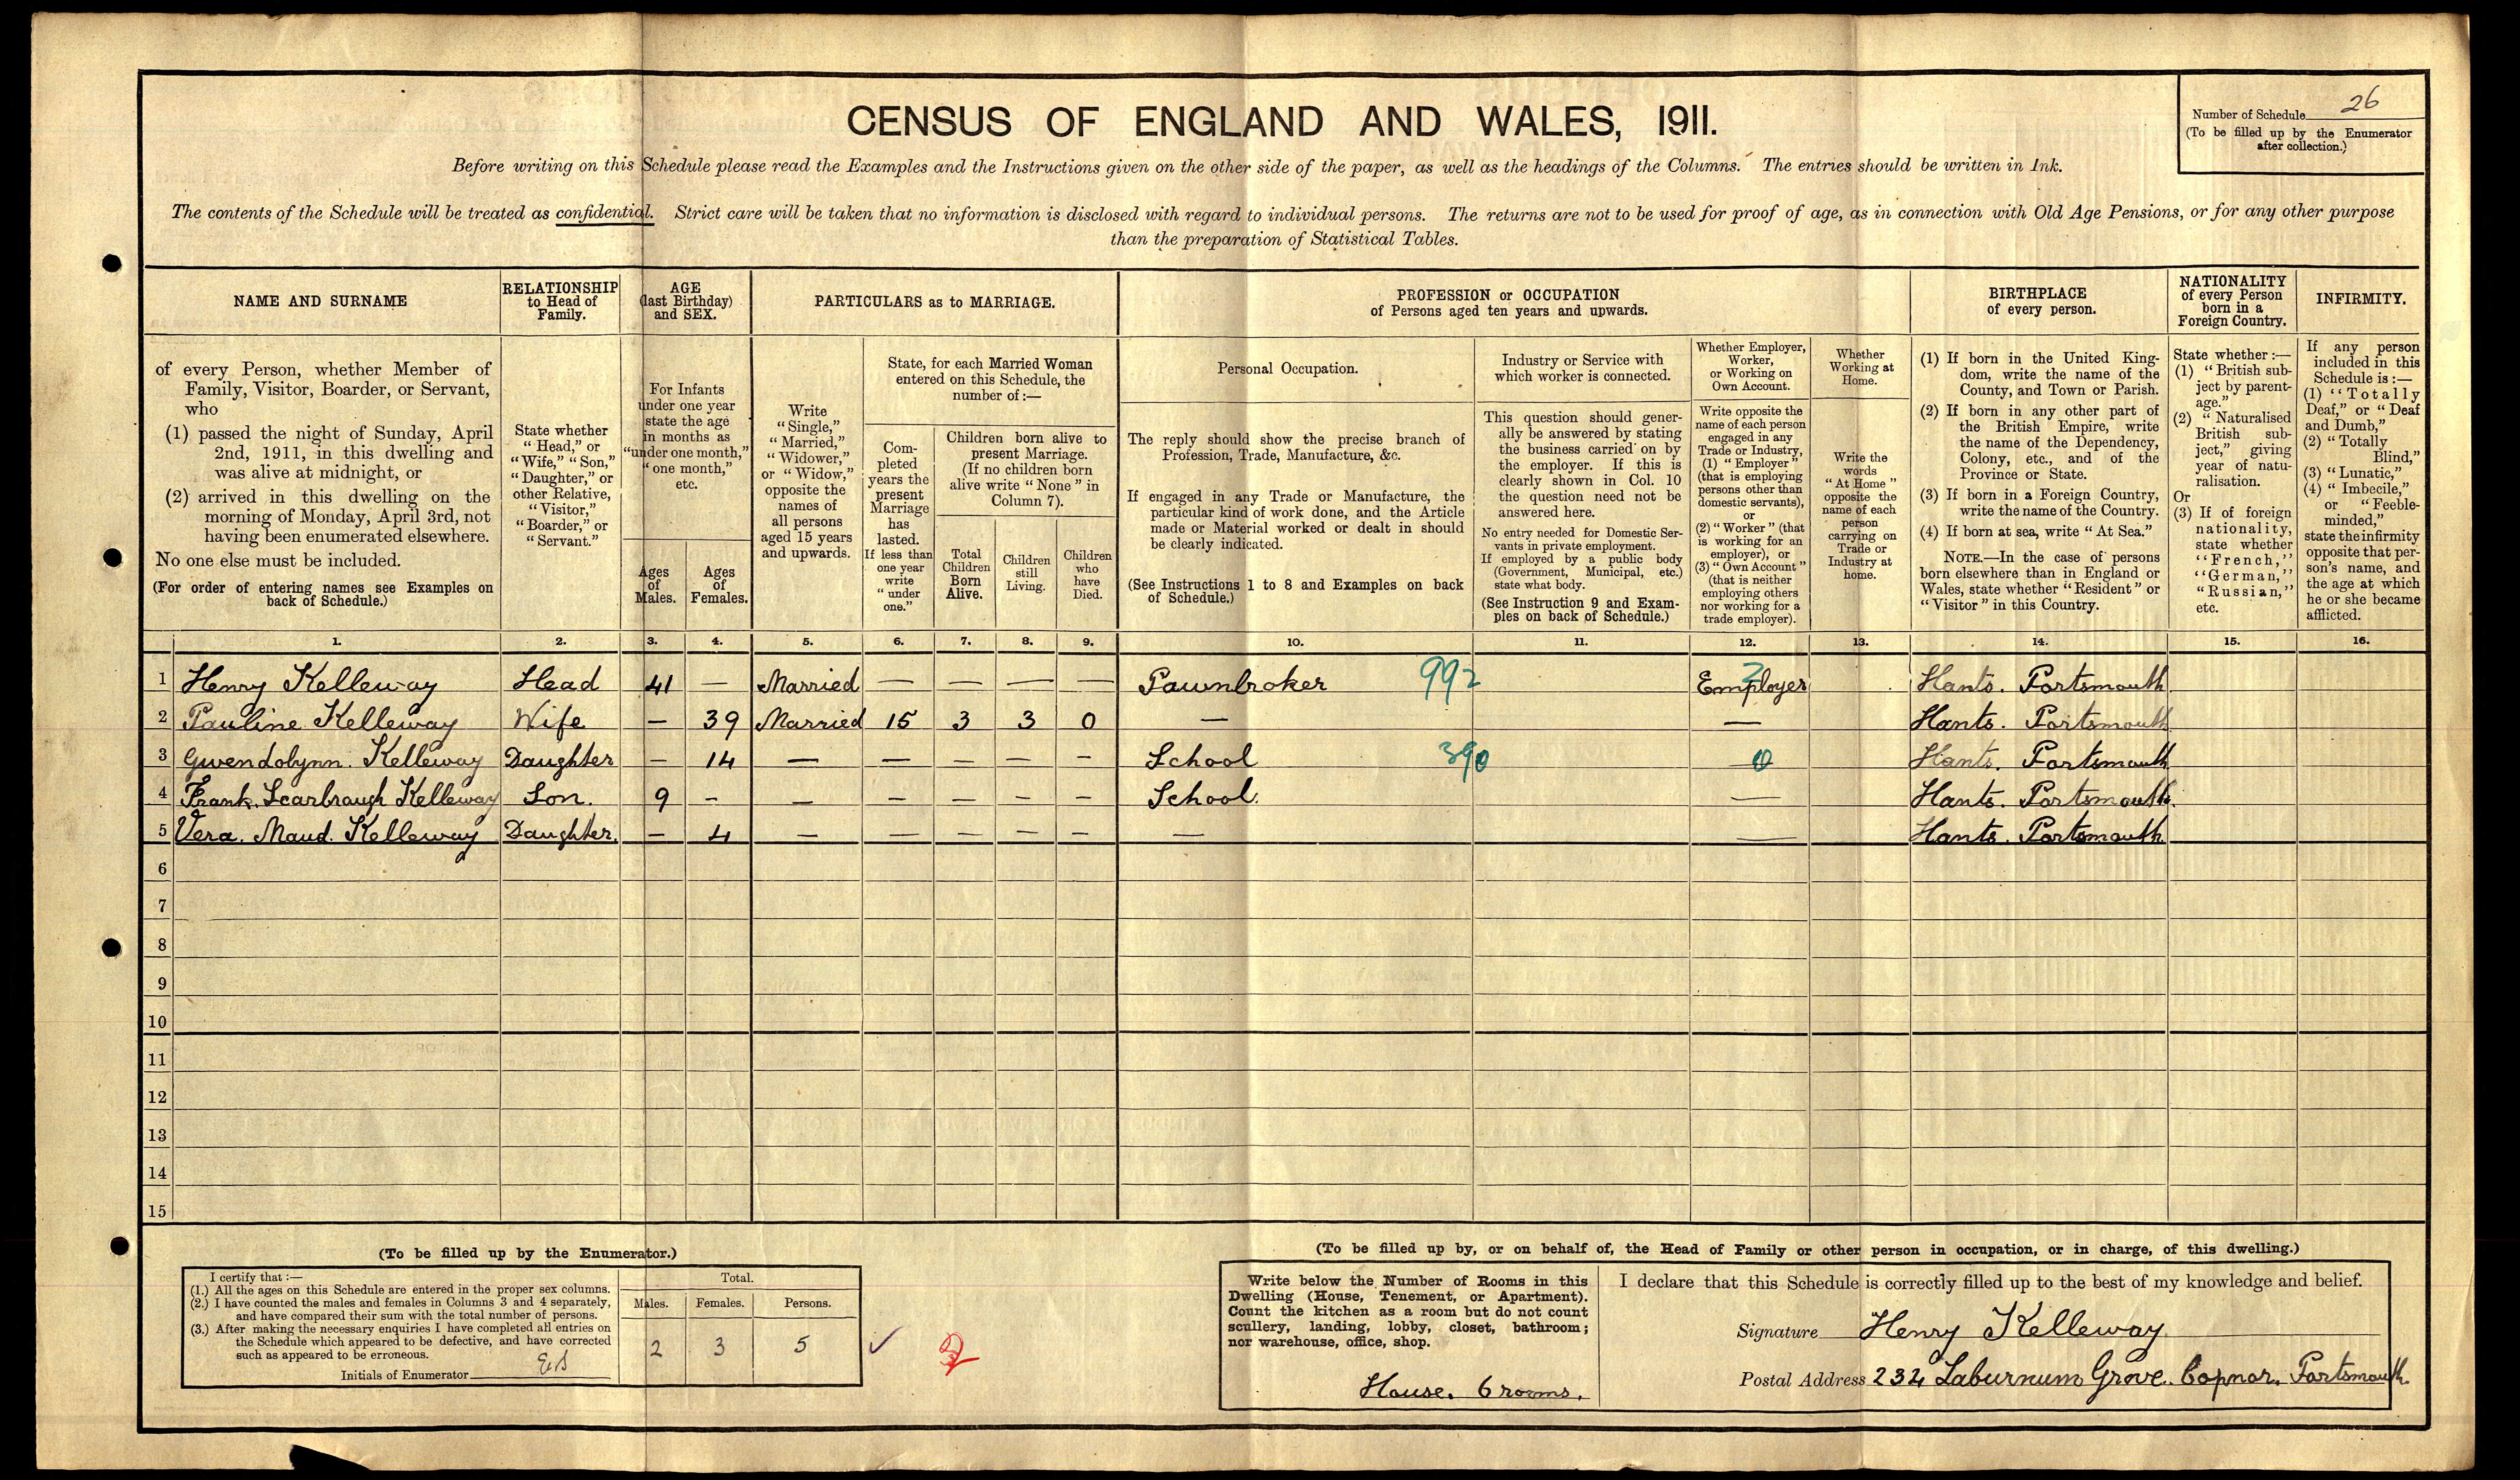 CENSUS OF ENGLAND AND WALES, 1911.
Number of Schedule 26
(To be filled up by the Enumerator
after collection.)
Before writing on this Schedule please read the Examples and the Instructions given on the other side of the paper, as well as the headings of the Columns. The entries should be written in Ink.
The contents of the Schedule will be treated as confidential. Strict care will be taken that no information is disclosed with regard to individual persons. The returns are not to be used for proof of age, as in connection with Old Age Pensions, or for any other purpose
than the preparation of Statistical Tables.
NAME AND SURNAME
of every Person, whether Member of
Family, Visitor, Boarder, or Servant,
who
(1) passed the night of Sunday, April
2nd, 1911, in this dwelling and
was alive at midnight, or
(2) arrived in this dwelling on the
morning of Monday, April 3rd, not
having been enumerated elsewhere.
No one else must be included.
(For order of entering names see Examples on
back of Schedule.)
RELATIONSHIP
to Head of
Family.
State whether
"Head," or
"Wife," "Son,"
"Daughter," or
other Relative,
"Visitor,"
"Boarder," or
"Servant."
AGE
(last Birthday)
and SEX.
For Infants
under one year
state the age
in months as
"under one month,"
"one month,"
etc.
Ages
of
Males.
Ages
of
Females.
PARTICULARS as to MARRIAGE.
Write
"Single,"
"Married,"
"Widower,"
or "Widow,"
opposite the
names of
all persons
aged 15 years
and upwards.
State, for each Married Woman
entered on this Schedule, the
number of:—
Com-
pleted
years the
present
Marriage
has
lasted.
If less than
one year
write
"under
one."
Children born alive to
present Marriage.
(If no children born
alive write "None" in
Column 7).
Total
Children
Born
Alive.
Children
still
Living.
Children
who
have
Died.
PROFESSION or OCCUPATION
of Persons aged ten years and upwards.
Personal Occupation.
The reply should show the precise branch of
Profession, Trade, Manufacture, &c.
If engaged in any Trade or Manufacture, the
particular kind of work done, and the Article
made or Material worked or dealt in should
be clearly indicated.
(See Instructions 1 to 8 and Examples on back
of Schedule.)
Industry or Service with
which worker is connected.
This question should gener-
ally be answered by stating
the business carried on by
the employer. If this is
clearly shown in Col. 10
the question need not be
answered here.
No entry needed for Domestic Ser-
vants in private employment.
If employed by a public body
(Government, Municipal, etc.)
state what body.
(See Instruction 9 and Exam-
ples on back of Schedule.)
Whether Employer,
Worker,
or Working on
Own Account.
Write opposite the
name of each person
engaged in any
Trade or Industry,
(1) "Employer"
(that is employing
persons other than
domestic servants),
or
(2) "Worker" (that
is working for an
employer), or
(3) "Own Account"
(that is neither
employing others
nor working for a
trade employer).
Whether
Working at
Home.
Write the
words
"At Home"
opposite the
name of each
person
carrying on
Trade or
Industry at
home.
BIRTHPLACE
of every person.
(1) If born in the United King-
dom, write the name of the
County, and Town or Parish.
(2) If born in any other part of
the British Empire, write
the name of the Dependency,
Colony, etc., and of the
Province or State.
(3) If born in a Foreign Country,
write the name of the Country.
(4) If born at sea, write "At Sea."
NOTE.—In the case of persons
born elsewhere than in England or
Wales, state whether "Resident" or
"Visitor" in this Country.
NATIONALITY
of every Person
born in a
Foreign Country.
State whether:—
(1) "British sub-
ject by parent-
age."
(2) "Naturalised
British sub-
ject," giving
year of natu-
ralisation.
Or
(3) If of foreign
nationality,
state whether
"French,"
"German,"
"Russian,"
etc.
INFIRMITY.
If any person
included in this
Schedule is:—
(1) "Totally
Deaf," or "Deaf
and Dumb,"
(2) "Totally
Blind,"
(3) "Lunatic,"
(4) "Imbecile,"
or "Feeble-
minded,"
state the infirmity
opposite that per-
son's name, and
the age at which
he or she became
afflicted.
1. 2. 3. 4. 5. 6. 7. 8. 9. 10. 11. 12. 13. 14. 15. 16.
1 Henry Kelleway Head 41 — Married — — — — Pawnbroker 992 Employer 2 Hants. Portsmouth
2 Pauline Kelleway Wife — 39 Married 15 3 3 0 — — Hants. Portsmouth
3 Gwendolynn. Kelleway Daughter — 14 — — — — — School 390 0 Hants. Portsmouth
4 Frank. Scarbraugh Kelleway Son. 9 - — — — — — School. — Hants. Portsmouth.
5 Vera. Maud. Kelleway Daughter. — 4 — — — — — — — Hants. Portsmouth.
6
7
8
9
10
11
12
13
14
15
(To be filled up by the Enumerator.)
I certify that:—
(1.) All the ages on this Schedule are entered in the proper sex columns.
(2.) I have counted the males and females in Columns 3 and 4 separately,
and have compared their sum with the total number of persons.
(3.) After making the necessary enquiries I have completed all entries on
the Schedule which appeared to be defective, and have corrected
such as appeared to be erroneous.
Initials of Enumerator
Total.
Males. Females. Persons.
2 3 5 ✓
(To be filled up by, or on behalf of, the Head of Family or other person in occupation, or in charge, of this dwelling.)
Write below the Number of Rooms in this
Dwelling (House, Tenement, or Apartment).
Count the kitchen as a room but do not count
scullery, landing, lobby, closet, bathroom;
nor warehouse, office, shop.
House. 6 rooms.
I declare that this Schedule is correctly filled up to the best of my knowledge and belief.
Signature Henry Kelleway.
Postal Address 232 Laburnum Grove. Copnor. Portsmouth.